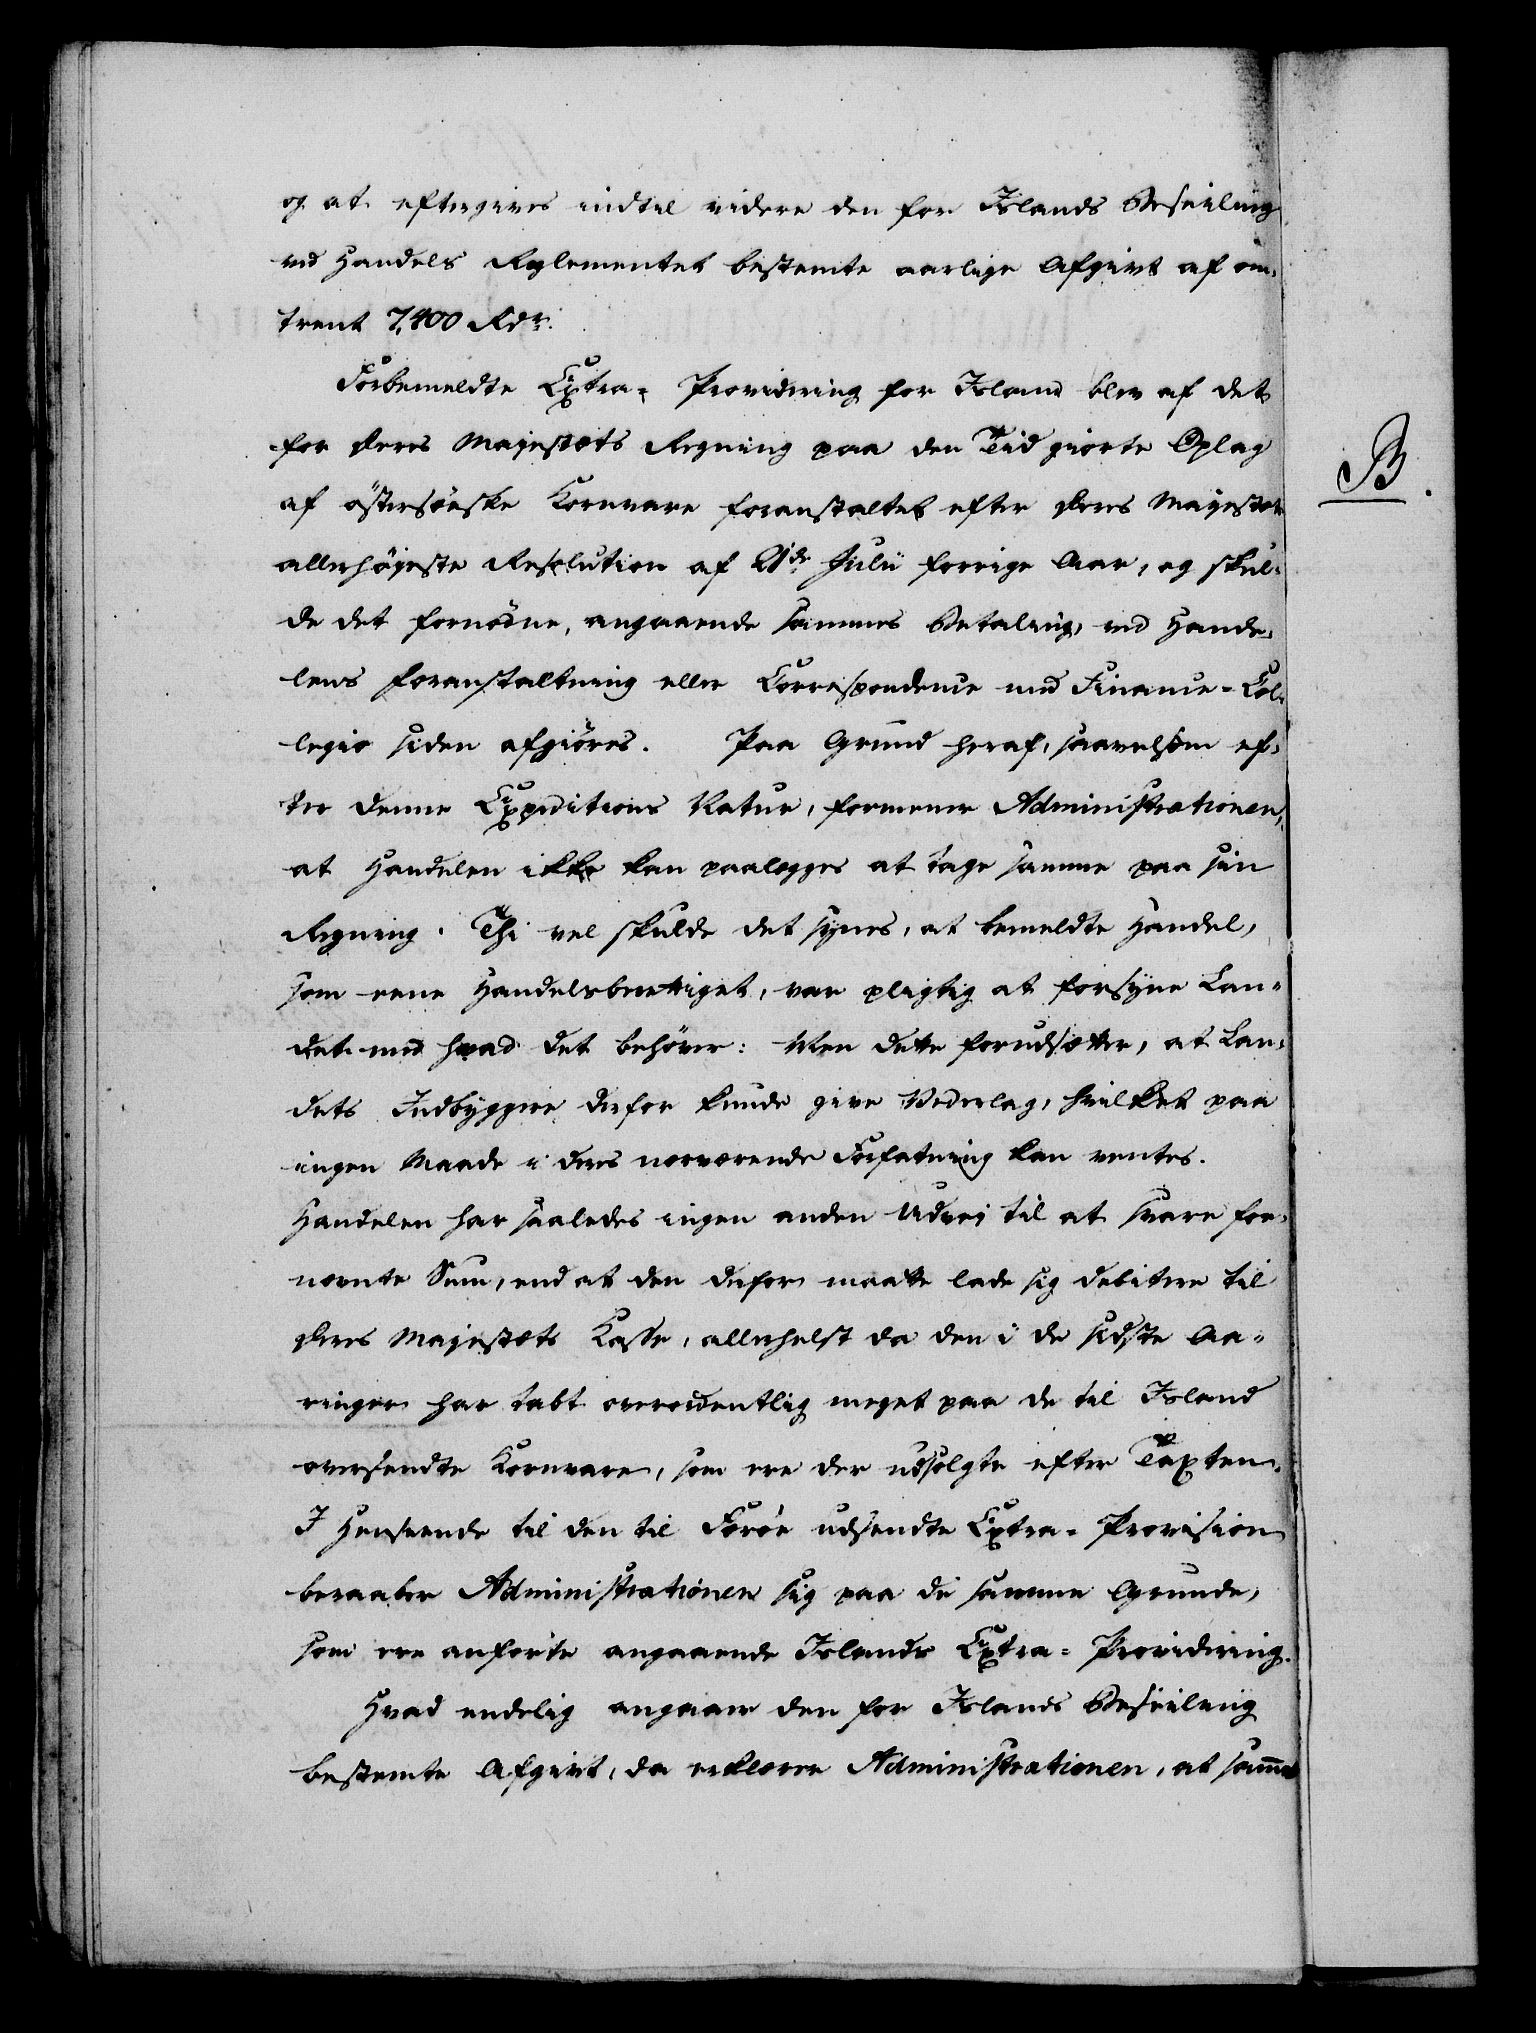 og at eftergives indtil videre den for Islands Beseiling
ved Handels Reglementet bestemte aarlige Afgivt af om-
trent 7,400 Rdr.
Forbemeldte Extra- Providering for Island blev af det
for Deres Majestæts Regning paa den Tiid giorte Oplag
B.
af östersöeske Kornvare foranstaltet efter Deres Majestæts
allerhöjeste Resolution af 21de Julii forrige Aar, og skul-
de det fornödne, angaaende sammes Betaling, ved Hande-
lens Foranstaltning eller Correspondence med Finance-Col-
legio siden afgiöres. Paa Grund heraf, saavelsom ef-
ter denne Expeditions Natur, formener Administrationen,
at Handelen ikke kan paalegges at tage samme paa sin
Regning. Thi vel skulde det synes, at bemeldte Handel,
som ene Handelsberettiget, var pligtig at forsyne Lan-
det med hvad det behöver: Men dette forudsætter, at Lan-
dets Indbyggere derfor kunde give Vederlag, hvilket paa
ingen Maade i deres nærværende Forfatning kan ventes.
Handelen har saaledes ingen anden Udvej til at svare for-
nævnte Sum, end at den derfor maatte lade sig debitere til
Deres Majestæts Kasse, allerhelst da den i de sidste Aa-
ringer har tabt overordentlig meget paa de til Island
oversendte Kornvare, som ere der udsolgte efter Taxten.
I Henseende til den til Færöe udsendte Extra- Provision
beraaber Administrationen sig paa de samme Grunde,
som ere anförte angaaende Islands Extra- Providering.
Hvad endelig angaaer den for Islands Beseiling
bestemte Afgivt, da erklærer Administrationen, at samme